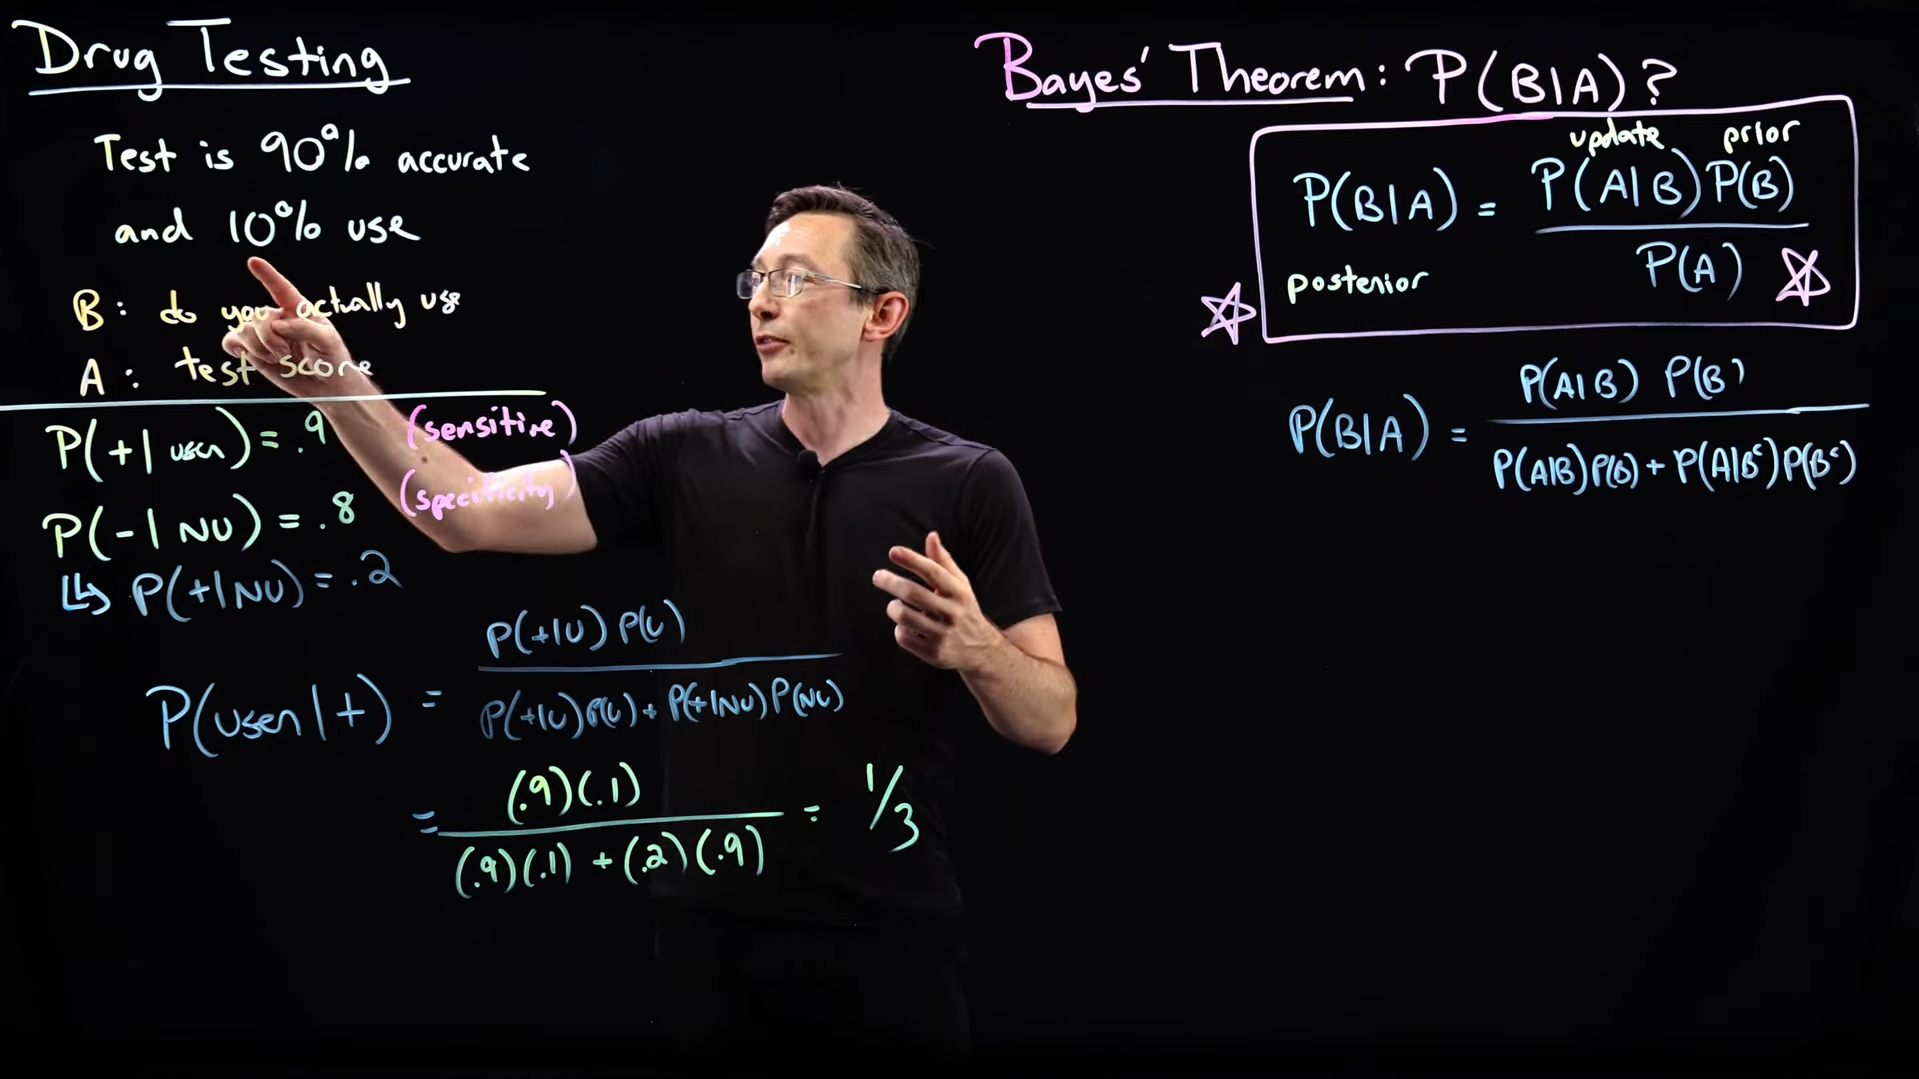 Drug Testing
Test is 90% accurate
and 10% use
B: do you actually use
A: test score
P(+|user) = .9 (sensitive)
P(-|NU) = .8 (specificity)
↳ P(+|NU) = .2
P(+|U) P(U)
P(user|+) =
P(+|U)P(U) + P(+|NU)P(NU)
(.9)(.1)
= = 1/3
(.9)(.1) + (.2)(.9)
Bayes' Theorem: P(B|A)?
update prior
P(A|B) P(B)
P(B|A) =
P(A)
posterior
P(A|B) P(B)
P(B|A) =
P(A|B)P(B) + P(A|Bᶜ)P(Bᶜ)